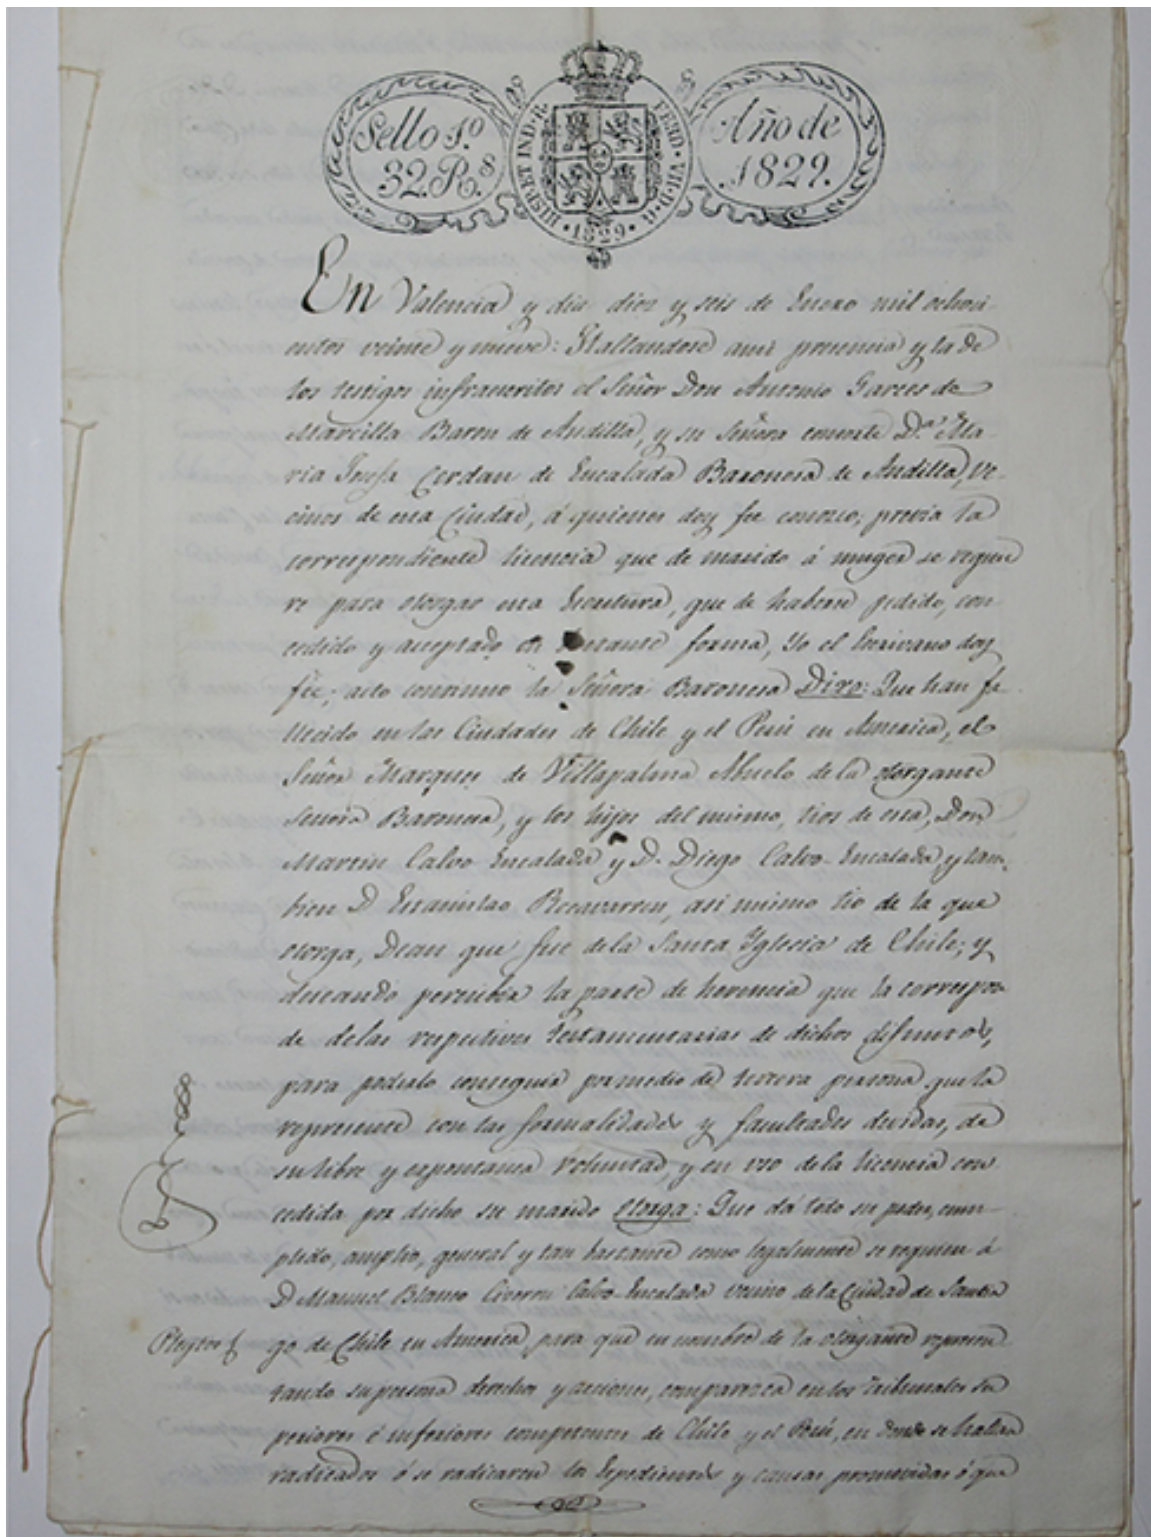 Sello 1.º
32. R.s
HISP. ET IND. R.
FERD. VII. D. G.
1829
Año de
1829.
En Valencia y dia diez y seis de Enero mil ochoci-
entos veinte y nueve: Hallandose ami presencia y la de
los testigos infraescritos el Señor Don Antonio Garces de
Marcilla Baron de Andilla, y su Señora consorte D.ª Ma-
ria Josefa Cerdan de Encalada Baronesa de Andilla, Ve-
cinos de esta Ciudad, á quienes doy fee conozco; previa la
correspondiente licencia que de marido á muger se requie
re para otorgar esta Escritura, que de haberse pedido, con
cedido y aceptado en bastante forma, Yo el Escrivano doy
fee; acto continuo la Señora Baronesa Dixo: Que han fa
llecido en las Ciudades de Chile y el Perú en America, el
Señor Marques de Villapalma Abuelo de la otorgante
Señora Baronesa, y los hijos del mismo, tios de esta, Don
Martin Calvo Encalada y D. Diego Calvo-Encalada, y tam-
bien D Estanislao Recavarren, asi mismo tio de la que
otorga, Dean que fue de la Santa Yglesia de Chile; y
deseando percibir la parte de herencia que la correspon
de de las respectivas testamentarias de dichos difuntos,
para poderlo conseguir por medio de tercera persona que la
represente con las formalidades y facultades devidas, de
su libre y espontanea voluntad, y en uso de la licencia con
cedida por dicho su marido Otorga: Que dá todo su poder, cum-
plido, amplio, general y tan bastante como legalmente se requiere á
D Manuel Blanco Ciceron Calvo-Encalada vecino de la Ciudad de Santia
Pleytos go de Chile en America, para que en nombre de la otorgante represen
tando su persona derechos y acciones, comparezca en los tribunales su
periores é inferiores competentes de Chile y el Perú, en donde se hallan
radicados ó se radicaren los Espedientes y causas promovidas ó que